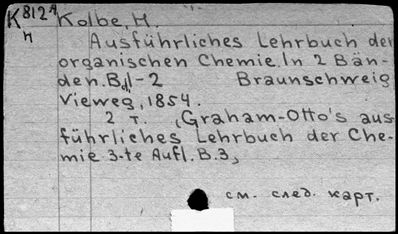 K 8124 Kolbe, H.
H Ausführliches Lehrbuch der
organischen Chemie. In 2 Bän-
den. Bd 1-2 Braunschweig
Vieweg, 1854.
2 т. (Graham-Otto's aus-
führliches Lehrbuch der Che-
mie 3-te Aufl. B.3)
см. след. карт.